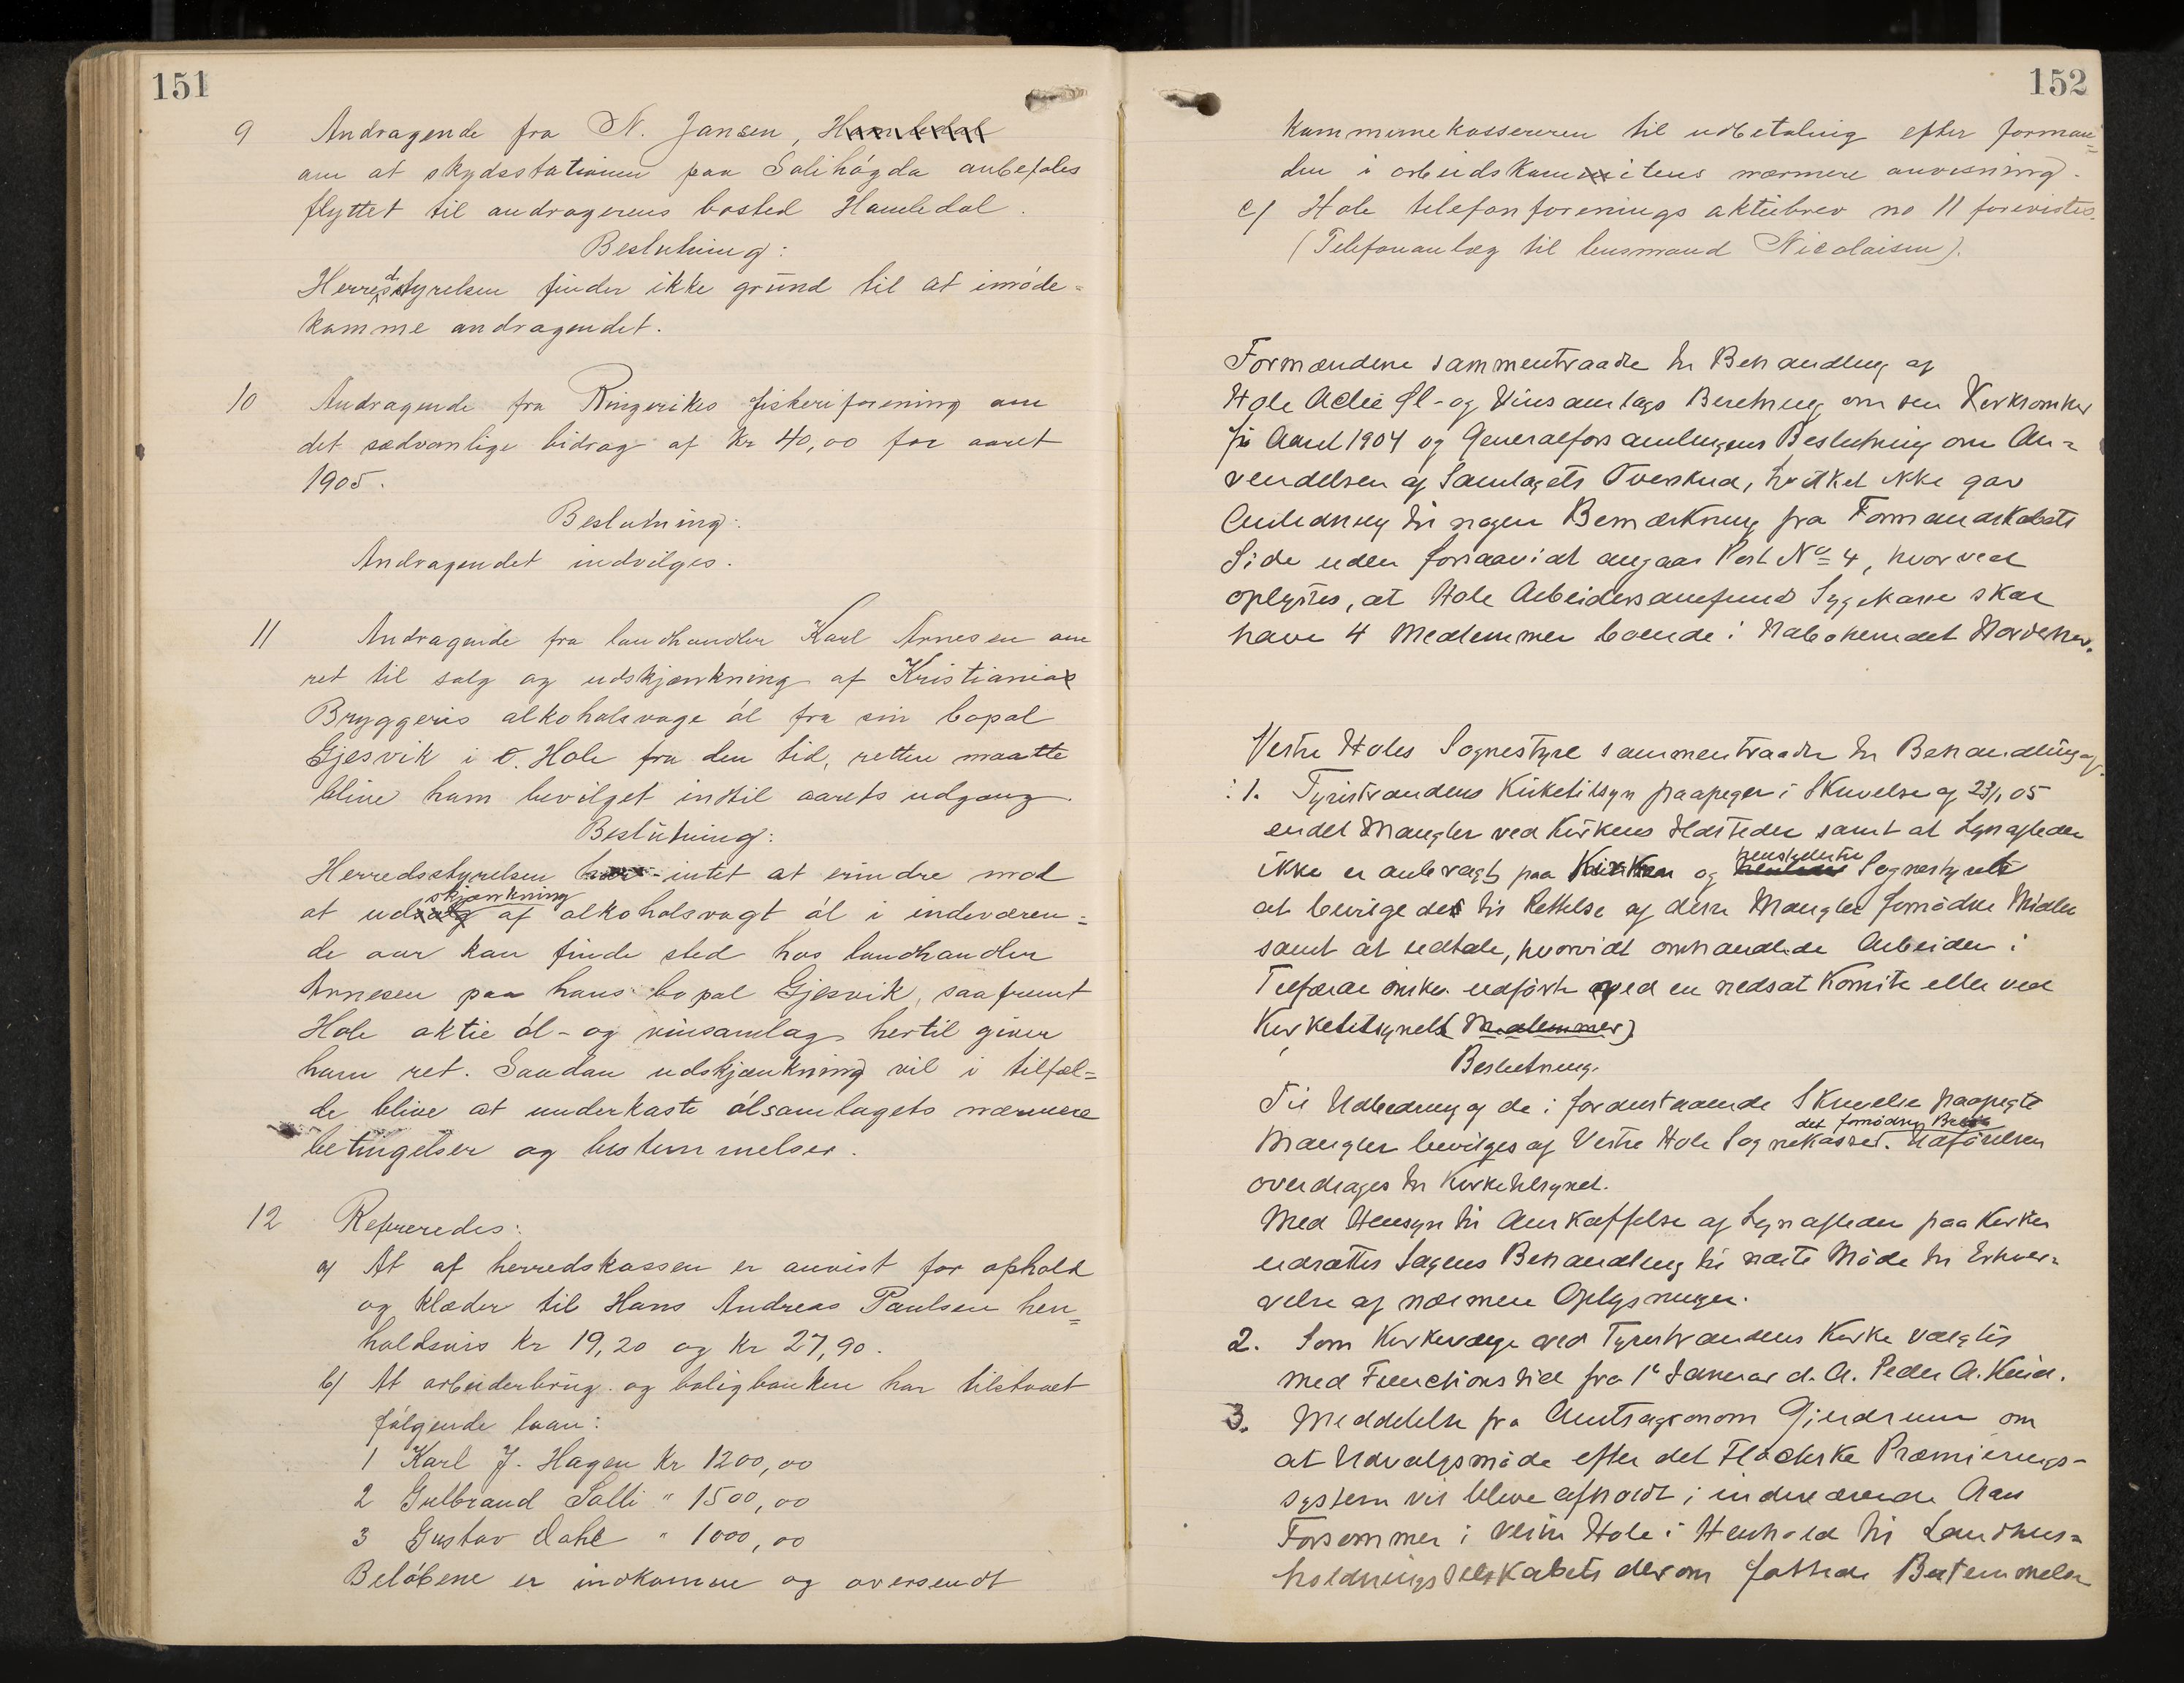 151
9 Andragende fra N. Jansen, Hamledal
om at skydsstationen paa Solihögda anbefales
flyttet til andragerens bosted Hamledal.
Beslutning:
Herredsstyrelsen finder ikke grund til at imöde=
komme andragendet.
10 Andragende fra Ringerikes fiskeriforening om
det sædvanlige bidrag af kr 40,00 for aaret
1905.
Beslutning:
Andragendet indvilges.
11 Andragende fra landhandler Karl Arnesen om
ret til salg og udskjænkning af Kristiania
Bryggeris alkoholsvage öl fra sin bopæl
Gjesvik i v. Hole fra den tid, retten maatte
blive ham bevilget indtil aarets udgang.
Beslutning:
Herredsstyrelsen har intet at erindre mod
at udskjænkning af alkoholsvagt öl i indeværen=
de aar kan finde sted hos landhandler
Arnesen paa hans bopæl Gjesvik, saafremt
Hole aktie öl- og vinsamlag hertil giver
ham ret. Saadan udskjænkning vil i tilfæl=
de blive at underkaste ölsamlagets nærmere
betingelser og bestemmelser.
12 Refereredes:
a) At af herredskassen er anvist for ophold
og klæder til Hans Andreas Paulsen hen=
holdsvis kr 19,20 og kr 27,90.
b) At arbeiderbrug- og boligbanken har tilstaaet
fölgende laan:
1 Karl J. Hagen kr 1200,00
2 Gulbrand Solli " 1500,00
3 Gustav Dahl " 1000,00
Belöbene er indkomne og oversendt
152
kommunekassereren til udbetaling efter forman=
den i arbeidskomitens nærmere anvisning.
c) Hole telefonforenings aktiebrev no 11 forevistes.
(Telefonanlæg til lensmand Nicolaisen).
Formændene sammentraadte til Behandling af
Hole Actie Øl- og Vinsamlags Beretning om sen Virksomhed
for Aaret 1904 og Generalforsamlingens Beslutning om An=
vendelsen af Samlagets Overskud, hvilket ikke gav
Anledning til nogen Bemærkning fra Formandskabets
Side uden forsaavidt angaar Post No 4, hvorved
oplystes, at Hole Arbeidersamfund Sygekasse skal
have 4 Medlemmer boende i Naboherredet Norderhov.
Vestre Holes Sognestyre sammentraadte til Behandling af:
1. Tyristrandens Kirketilsyn paapeger i Skrivelse af 23/1 05
endel Mangler ved Kirkens Ildsteder samt at Lynafleder
ikke er anbragt paa Kirken og henstiller til Sognestyret
at bevilge de til Rettelse af disse Mangler fornödne Midler
samt at udtale, hvorvidt omhandlede Arbeider i
Tilfælde önskes udfört ved en nedsat Komite eller ved
Kirketilsynets Medlemmer).
Beslutning.
Til Udbedring af de i foranstaaende Skrivelse paapegte
Mangler bevilges af Vestre Hole Sognekasse det fornödne Belöb. Udförelsen
overdrages til Kirketilsynet.
Med Hensyn til Anskaffelse af Lynafleder paa Kirken
udsættes Sagens Behandling til næste Möde til Erhver=
velse af nærmere Oplysninger.
2. Som Kirkeværge ved Tyristrandens Kirke valgtes
med Functionstid fra 1 Januar d. A. Peder A.
3. Meddelelse fra Amtsagronom Gjerdrum om
at Udvalgsmöde efter det Præmierings-
system vil blive afholdt i indeværende Aars
Forsommer i Vestre Hole i Henhold til Landhus=
holdningsselskabets derom fattede Bestemmelse